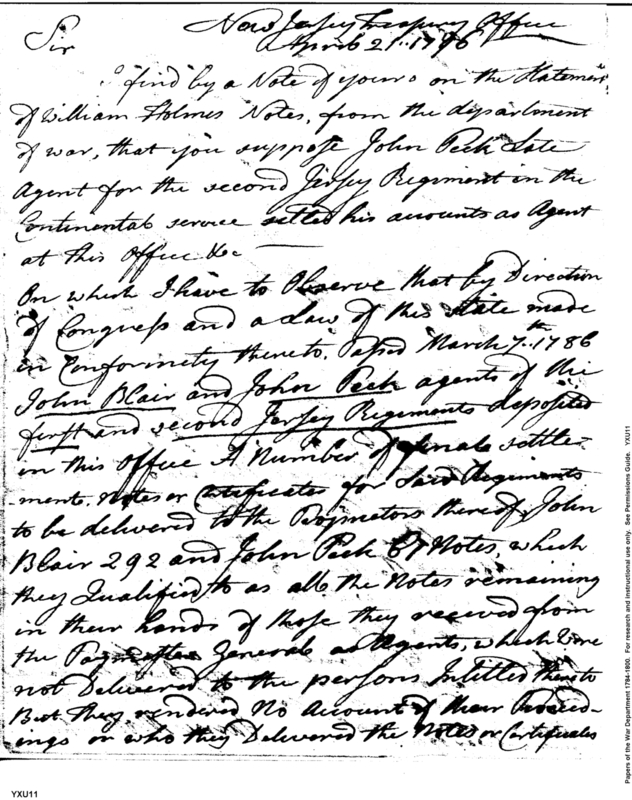 New Jersey Treasury Office
April 21. 1796
Sir
I find by a Note of yours on the Statement
of William Holmes Notes, from the department
of war, that you suppose John Peck Late
Agent for the second Jersey Regiment in the
Continental service settled his accounts as Agent
at this Office &c
On which I have to Observe that by Direction
of Congress and a Law of this State made
in Conformity thereto. Passed March 7th. 1786
John Blair and John Peck agents of the
first and second Jersey Regiments deposited
in this Office A Number of finale settle-
ment. Notes or Certificates for Said Regiments
to be delivered to the Propriators thereof, John
Blair 292 and John Peck 67 Notes, which
they Qualified to as all the Notes remaining
in their hands of those they received from
the Paymaster Generals as Agents, which were
not Delivered to the persons Intitled thereto
But they rendered No Account of their Proceed-
ings or who they Delivered the Notes or Certificates
Papers of the War Department 1784-1800. For research and instructional use only. See Permissions Guide. YXU11
YXU11